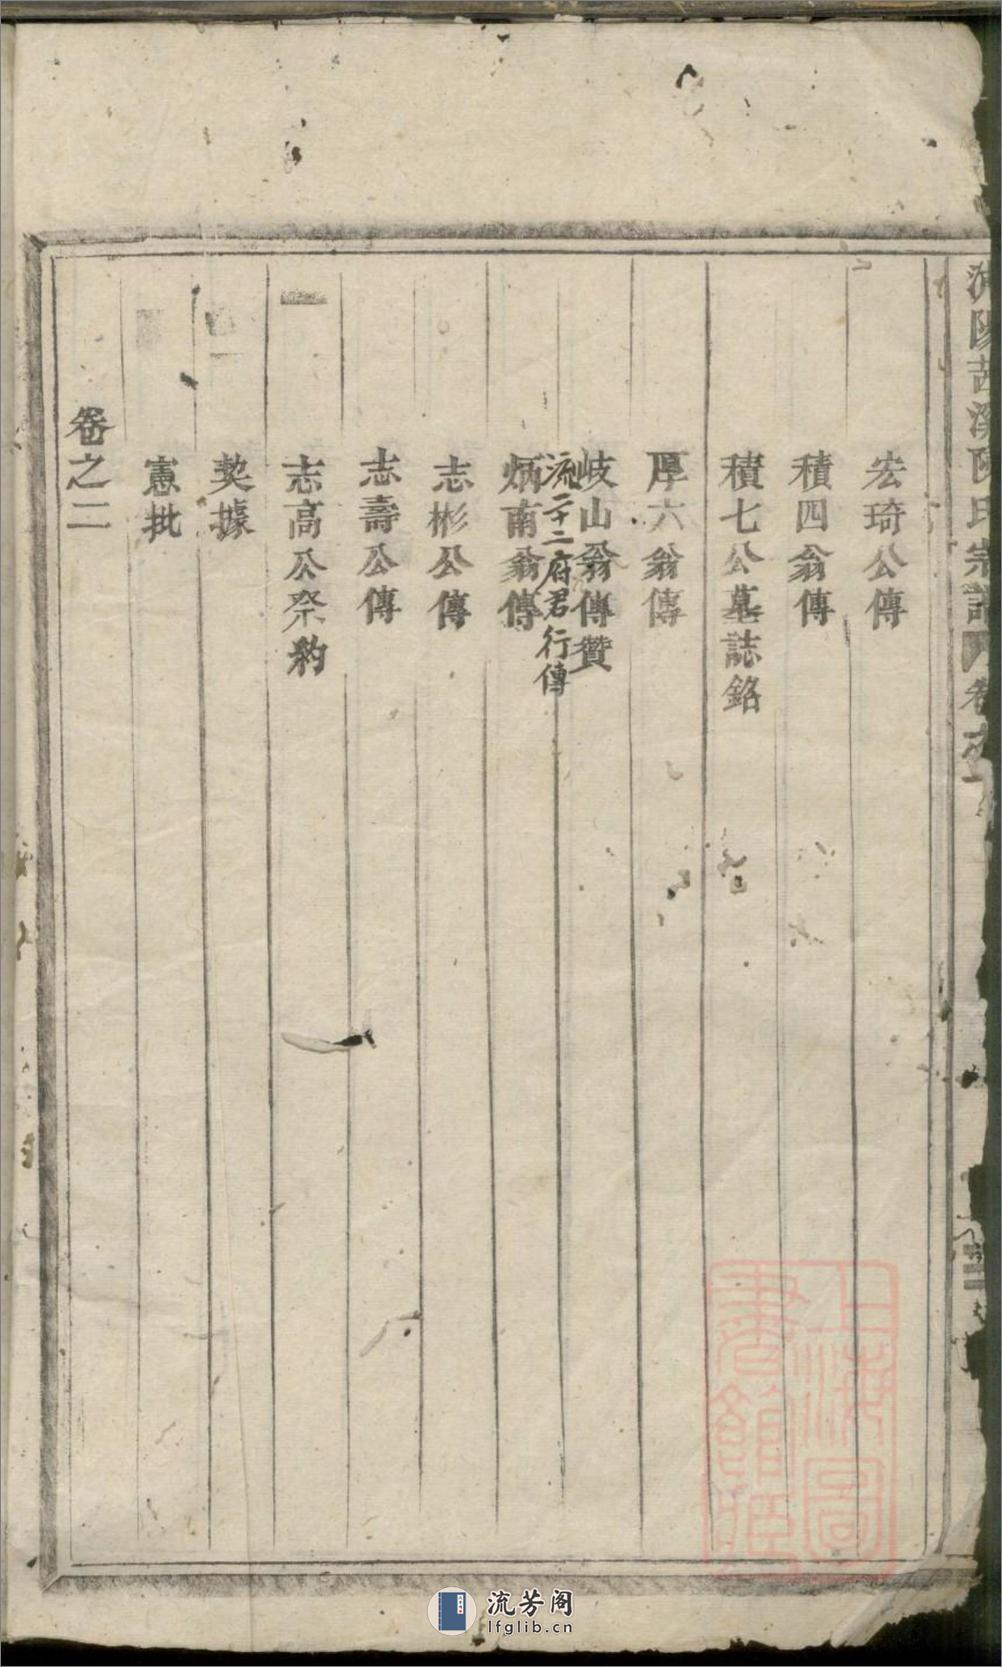 宗譜
宏琦公傳
積四翁傳
積七公墓誌銘
厚六翁傳
岐山翁傳贊
流二十二府君行傳
炳南翁傳
志彬公傳
志壽公傳
志高公祭
契據
憲批
卷之二
上海圖
書館
流芳阁
lfglib.cn